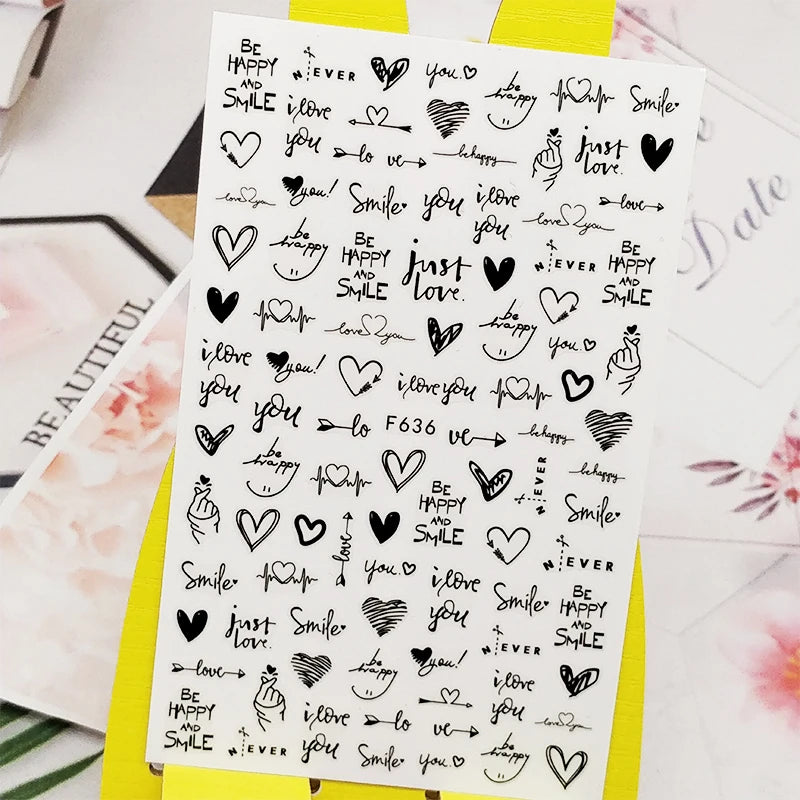 BE
HAPPY
AND
SMILE
N EVER
you.
be
happy
Smile
i love
you
lo ve
be happy
just
love.
love you
you!
Smile
you
i love
you
love you
love
be
happy
BE
HAPPY
AND
SMILE
just
love.
N EVER
BE
HAPPY
AND
SMILE
love you
be
happy
you.
i love
you
you!
i love you
you
lo F636 ve
be happy
be
happy
BE
HAPPY
AND
SMILE
N EVER
be happy
Smile
love
you.
N EVER
Smile
i love
you
Smile
BE
HAPPY
AND
SMILE
just
love.
Smile
N EVER
love
be
happy
you!
i love
you
love you
BE
HAPPY
AND
SMILE
N EVER
i love
you
lo ve
Smile
you.
be
happy
BEAUTIFUL
Date